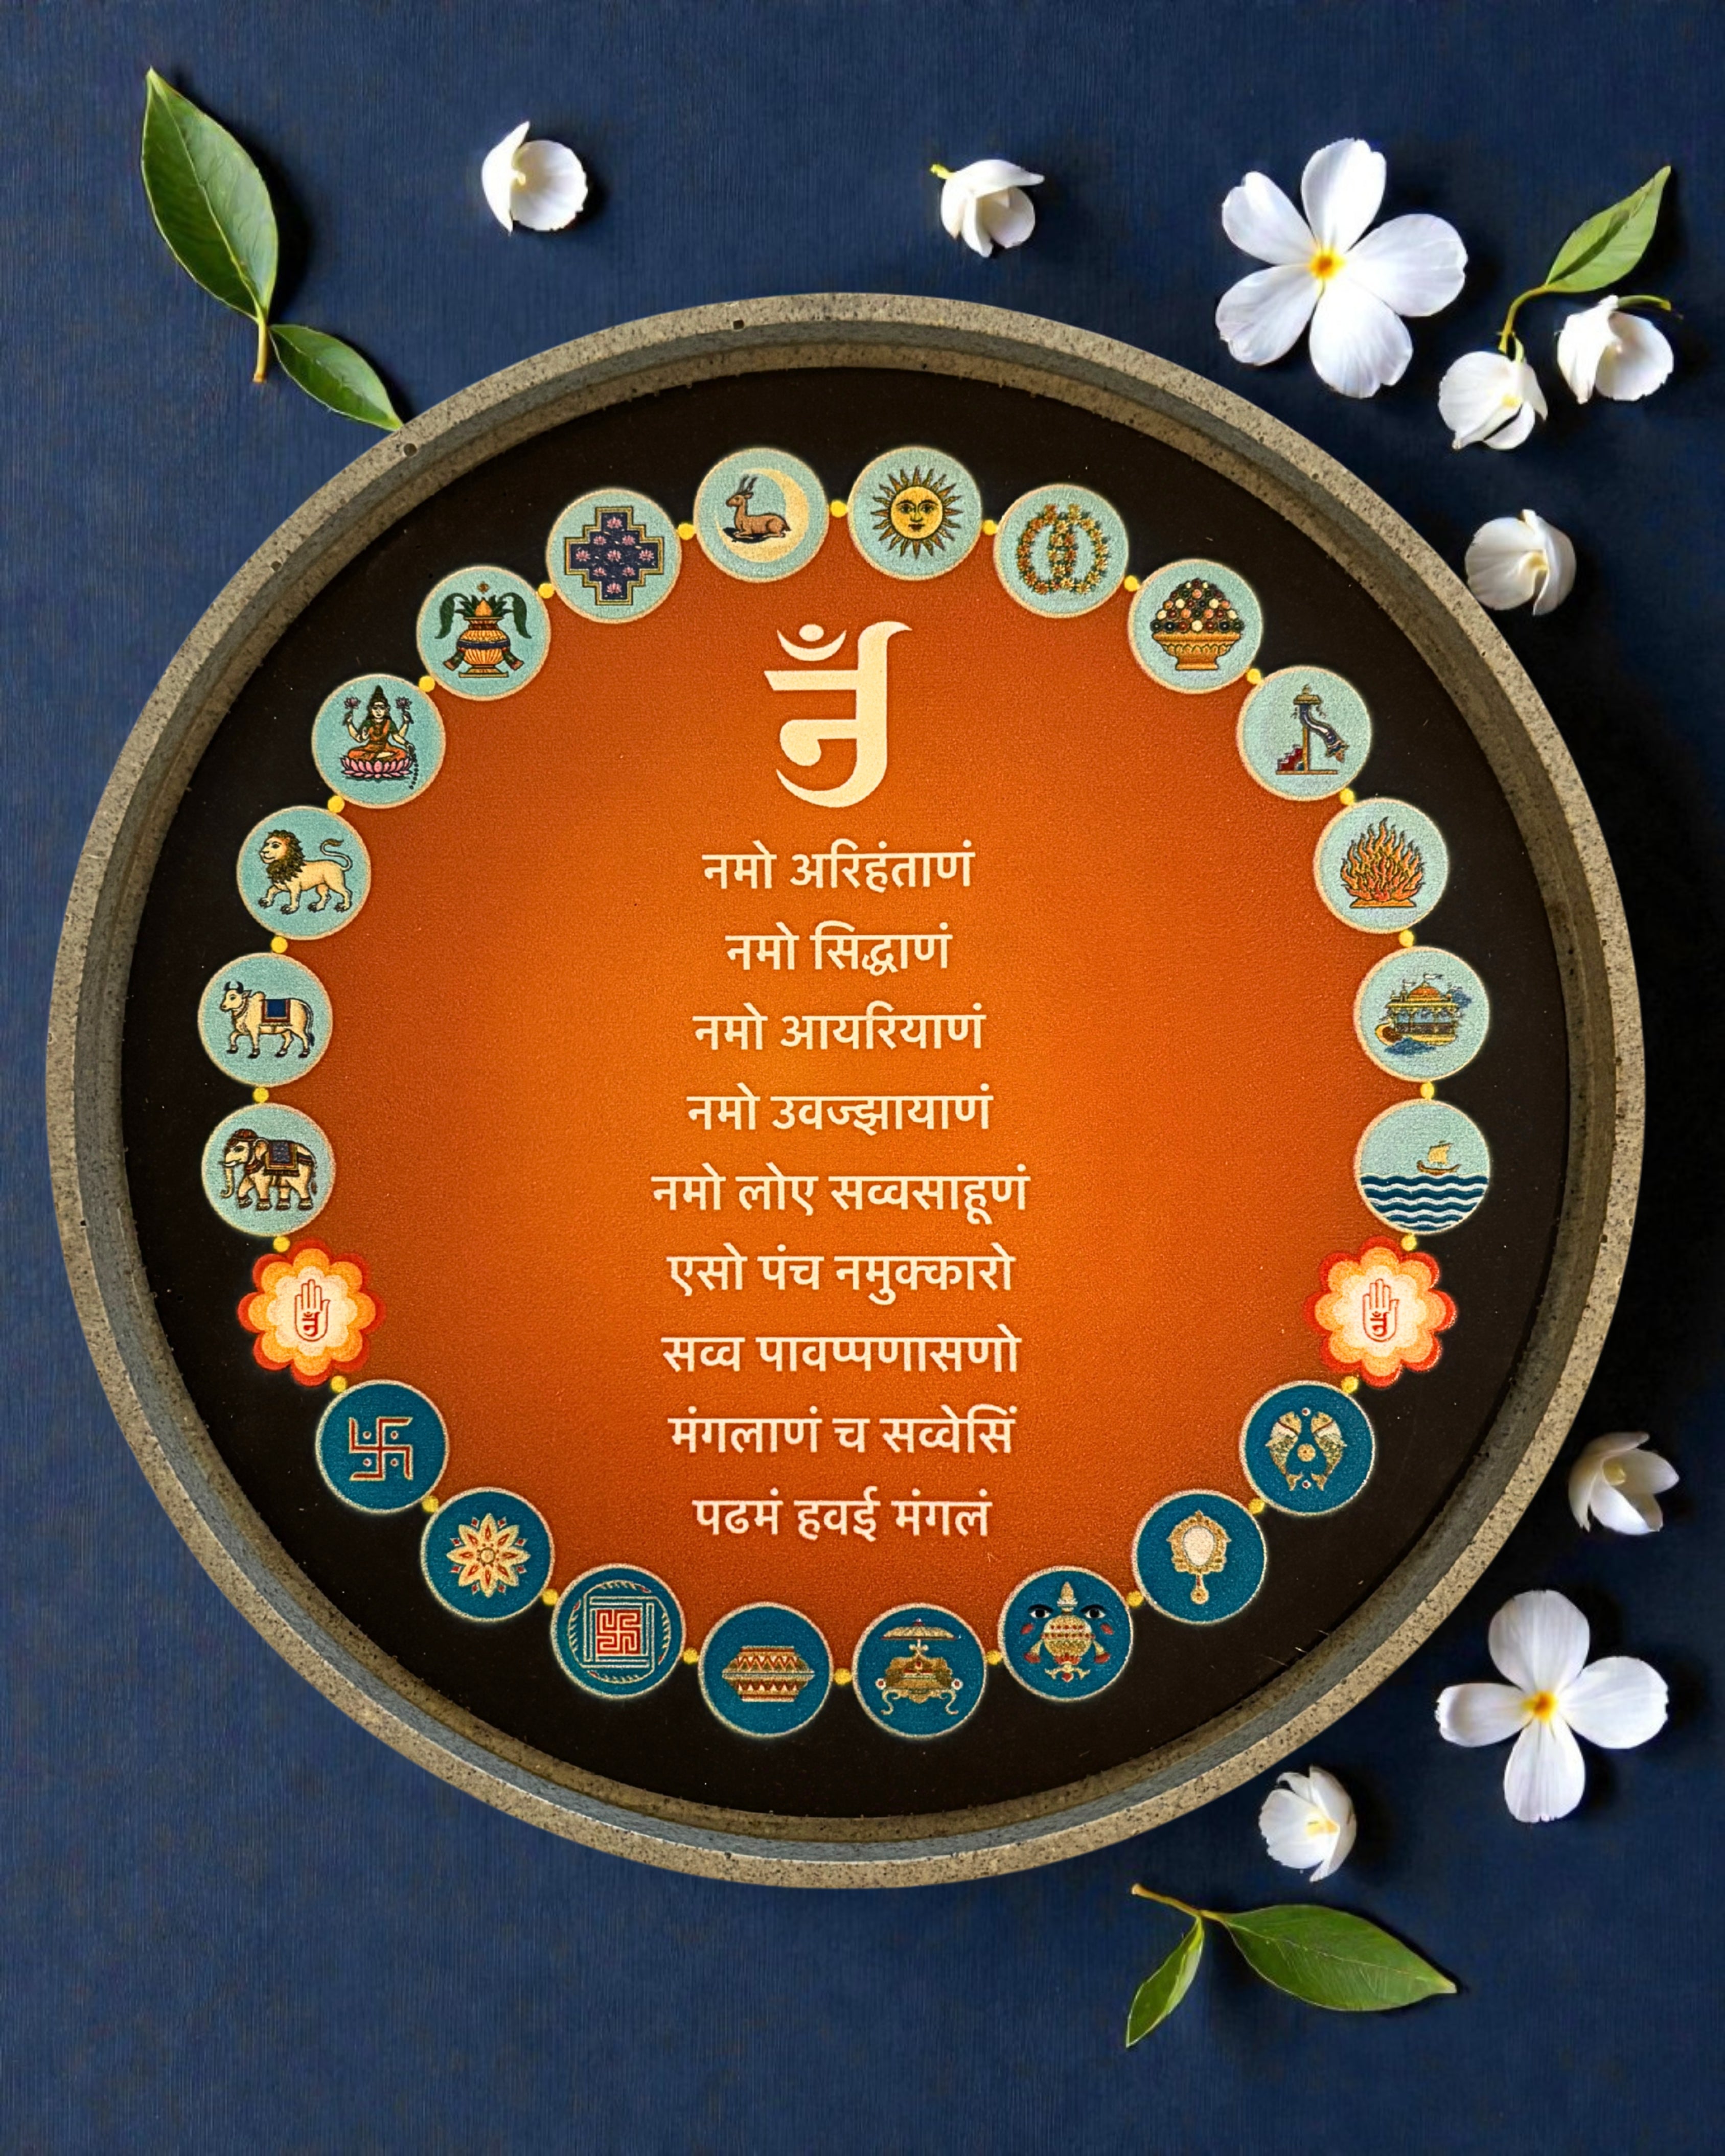 ॐ
नमो अरिहंताणं
नमो सिद्धाणं
नमो आयरियाणं
नमो उवज्झायाणं
नमो लोए सव्वसाहूणं
एसो पंच नमुक्कारो
सव्व पावप्पणासणो
मंगलाणं च सव्वेसिं
पढमं हवई मंगलं